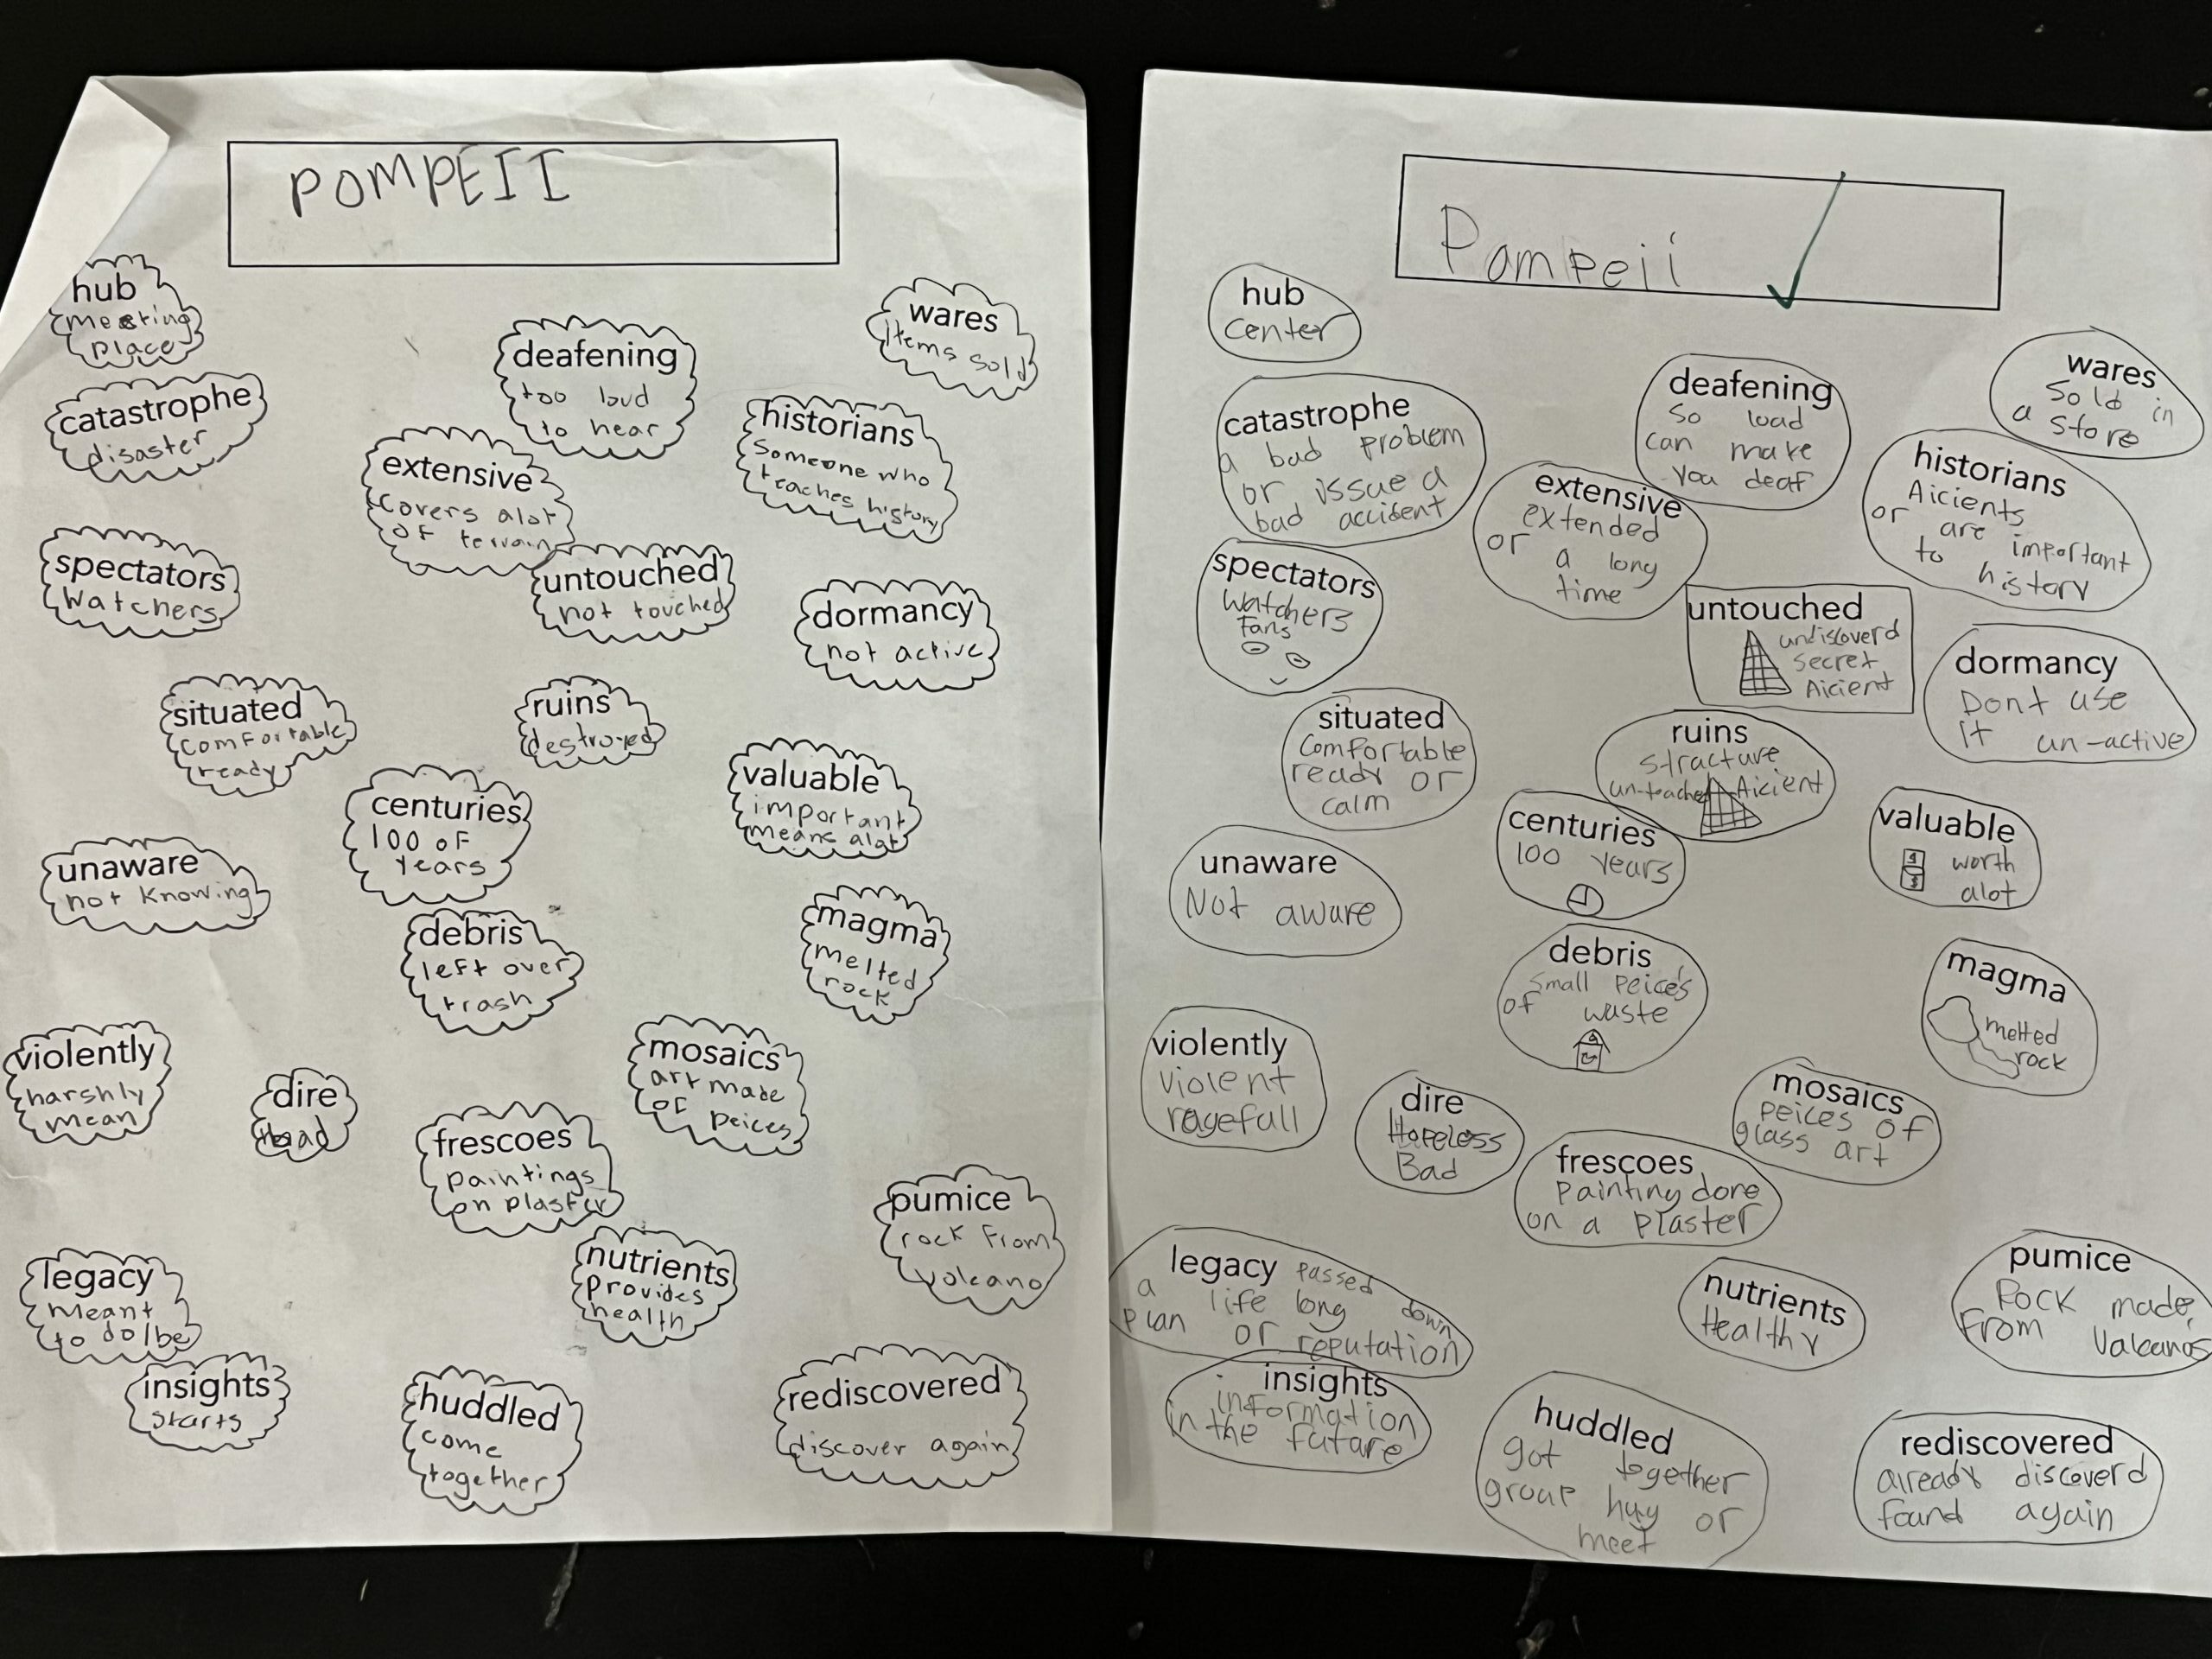 POMPEII
hub
meeting
place
wares
items sold
deafening
too loud
to hear
catastrophe
disaster
historians
Someone who
teaches history
extensive
Covers alot
of terrain
spectators
Watchers
untouched
not touched
dormancy
not active
situated
comfortable
ready
ruins
destroyed
valuable
important
means alot
centuries
100 of
years
unaware
not knowing
debris
left over
trash
magma
melted
rock
violently
harshly
mean
dire
mosaics
art made
of peices
frescoes
paintings
on plaster
pumice
rock from
volcano
nutrients
provides
health
legacy
Meant
to do/be
insights
starts
huddled
come
together
rediscovered
discover again
Pompeii
hub
center
wares
Sold in
a store
deafening
so load
can make
you deaf
catastrophe
a bad problem
or issue a
bad accident
historians
Aicients
or are important
to history
extensive
extended
or a long
time
spectators
Watchers
Fans
untouched
undiscoverd
secret
Aicient
dormancy
Dont use
it un-active
situated
Comfortable
ready or
calm
ruins
stracture
Aicient
centuries
100 years
valuable
worth
alot
unaware
Not aware
debris
Small peice's
of waste
magma
melted
rock
violently
violent
ragefull
dire
Hopeless
Bad
mosaics
peices of
glass art
frescoes
painting done
on a plaster
legacy passed down
a life long
plan or reputation
nutrients
Healthy
pumice
Rock made
From Valcanos
insights
information
in the future
huddled
got together
group hug or
meet
rediscovered
already discoverd
found again